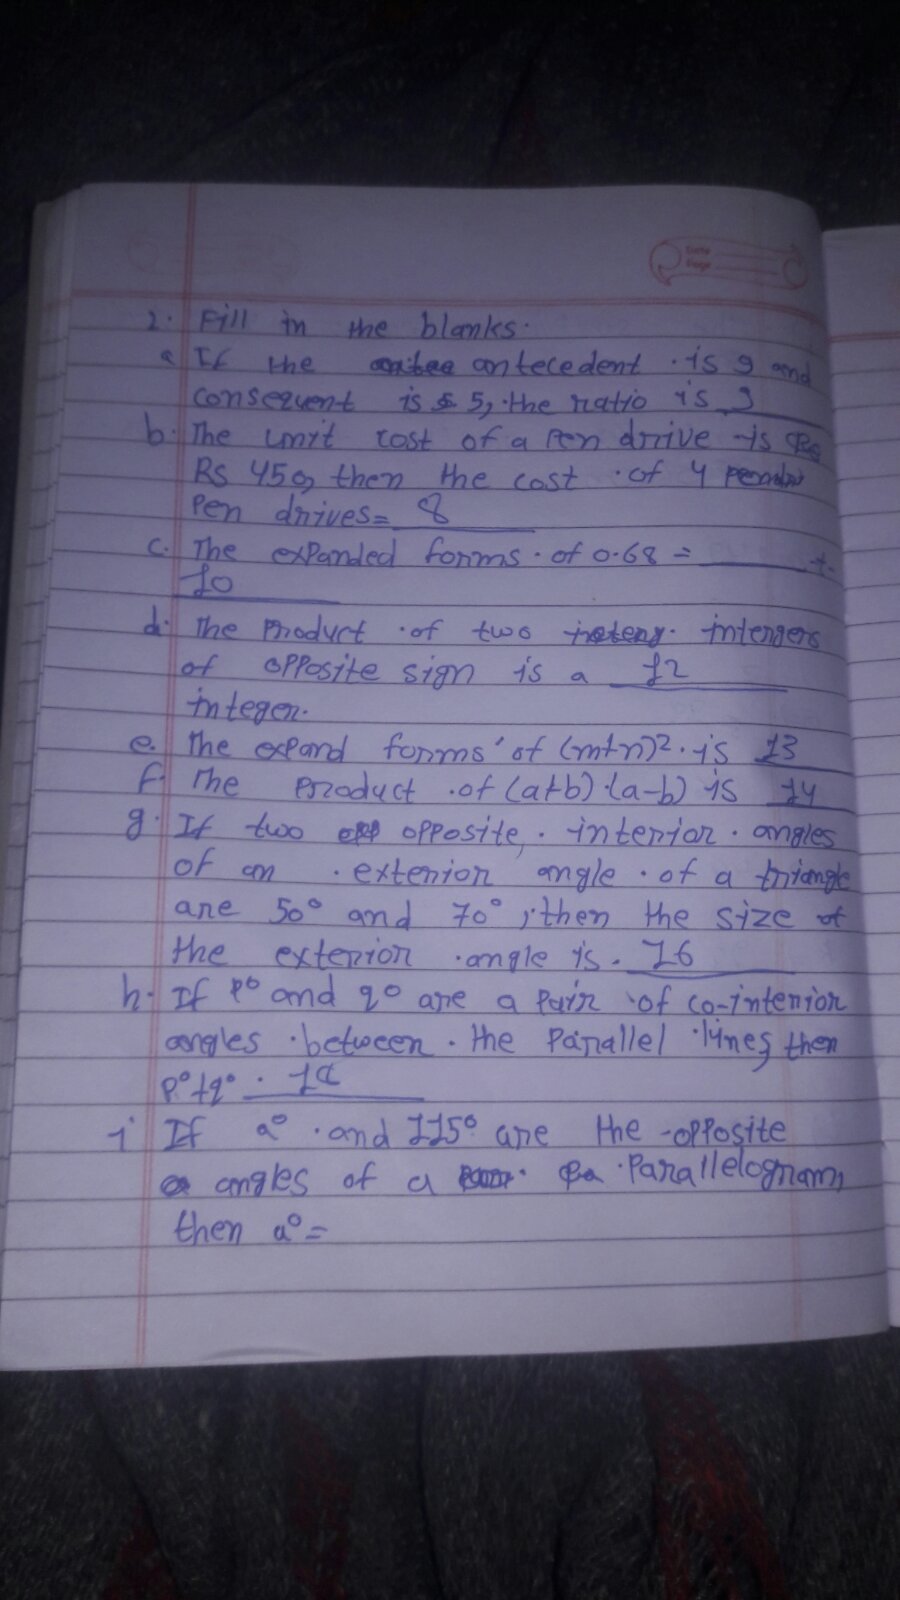 Date
Page
2. Fill in the blanks.
a If the antecedent is 9 and
consequent is 5, the ratio is 9
b. The unit cost of a Pen drive is
Rs 450, then the cost of 4
Pen drives= 8
c. The expanded forms of 0.68 = ____ +
10
d. The Product of two intengers
of opposite sign is a 12
integer.
e. The expand forms of (m+n)². is 13
f. The product of (a+b) (a-b) is 14
g. If two opposite, interior angles
of an exterior angle of a triangle
are 50° and 70°, then the size of
the exterior angle is. 16
h. If p° and q° are a pair of co-interior
angles between the parallel lines, then
p°+q°
i If a° and 115° are the opposite
angles of a Parallelogram,
then a°=